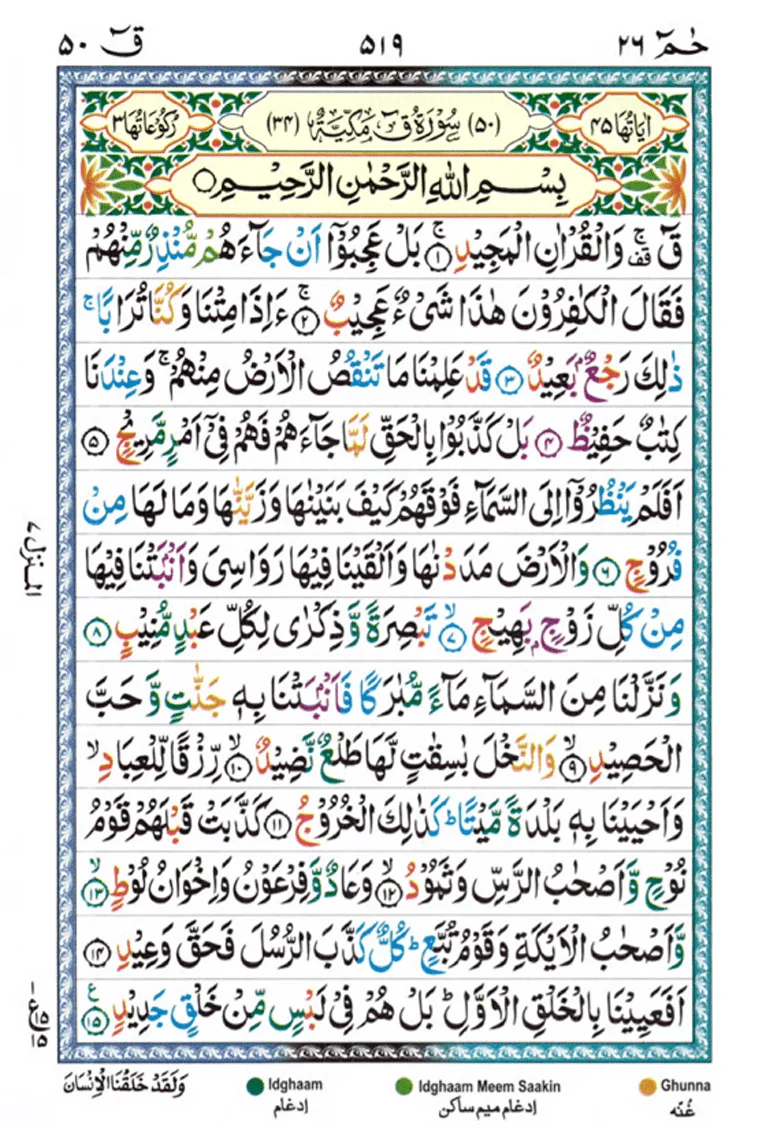 حٰمٓ ٢٦ ٥١٩ قٓ ٥٠
اٰيَاتُهَا ٤٥ (٥٠) سُوْرَةُ قٓ مَكِّيَّةٌ (٣٤) رُكُوْعَاتُهَا ٣
بِسْمِ اللّٰهِ الرَّحْمٰنِ الرَّحِيْمِ
قٓ ۚ وَالْقُرْاٰنِ الْمَجِيْدِ ۚ ١ بَلْ عَجِبُوْۤا اَنْ جَآءَهُمْ مُّنْذِرٌ مِّنْهُمْ
فَقَالَ الْكٰفِرُوْنَ هٰذَا شَيْءٌ عَجِيْبٌ ۚ ٢ ءَاِذَا مِتْنَا وَكُنَّا تُرَابًا ۚ
ذٰلِكَ رَجْعٌۢ بَعِيْدٌ ٣ قَدْ عَلِمْنَا مَا تَنْقُصُ الْاَرْضُ مِنْهُمْ ۚ وَعِنْدَنَا
كِتٰبٌ حَفِيْظٌ ٤ بَلْ كَذَّبُوْا بِالْحَقِّ لَمَّا جَآءَهُمْ فَهُمْ فِيْۤ اَمْرٍ مَّرِيْجٍ ٥
اَفَلَمْ يَنْظُرُوْۤا اِلَى السَّمَآءِ فَوْقَهُمْ كَيْفَ بَنَيْنٰهَا وَزَيَّنّٰهَا وَمَا لَهَا مِنْ
فُرُوْجٍ ٦ وَالْاَرْضَ مَدَدْنٰهَا وَاَلْقَيْنَا فِيْهَا رَوَاسِيَ وَاَنْۢبَتْنَا فِيْهَا
مِنْ كُلِّ زَوْجٍۭ بَهِيْجٍ ۙ ٧ تَبْصِرَةً وَّذِكْرٰى لِكُلِّ عَبْدٍ مُّنِيْبٍ ٨
وَنَزَّلْنَا مِنَ السَّمَآءِ مَآءً مُّبٰرَكًا فَاَنْۢبَتْنَا بِهٖ جَنّٰتٍ وَّحَبَّ
الْحَصِيْدِ ۙ ٩ وَالنَّخْلَ بٰسِقٰتٍ لَّهَا طَلْعٌ نَّضِيْدٌ ۙ ١٠ رِّزْقًا لِّلْعِبَادِ ۙ
وَاَحْيَيْنَا بِهٖ بَلْدَةً مَّيْتًا ؕ كَذٰلِكَ الْخُرُوْجُ ١١ كَذَّبَتْ قَبْلَهُمْ قَوْمُ
نُوْحٍ وَّاَصْحٰبُ الرَّسِّ وَثَمُوْدُ ۙ ١٢ وَعَادٌ وَّفِرْعَوْنُ وَاِخْوَانُ لُوْطٍ ۙ ١٣
وَّاَصْحٰبُ الْاَيْكَةِ وَقَوْمُ تُبَّعٍ ؕ كُلٌّ كَذَّبَ الرُّسُلَ فَحَقَّ وَعِيْدِ ١٤
اَفَعَيِيْنَا بِالْخَلْقِ الْاَوَّلِ ؕ بَلْ هُمْ فِيْ لَبْسٍ مِّنْ خَلْقٍ جَدِيْدٍ ١٥
وَلَقَدْ خَلَقْنَا الْاِنْسَانَ
Idghaam Idghaam Meem Saakin Ghunna
ادغام ادغام میم ساکن غُنّہ